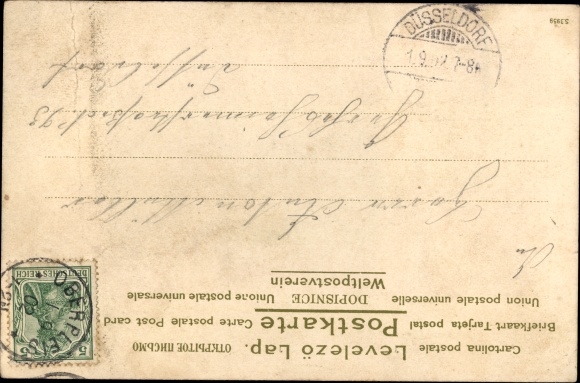 Cartolina postale Levelező Lap. ОТКРЫТОЕ ПИСЬМО
Briefkaart Tarjeta postal Postkarte Carte postale Post card
Union postale universelle DOPISNICE Unione postale universale
Weltpostverein
An
Herrn Anton Müller
Düsseldorf
DÜSSELDORF
1.9.02.7-8
DEUTSCHES REICH
5
OBERPLEIS
53959